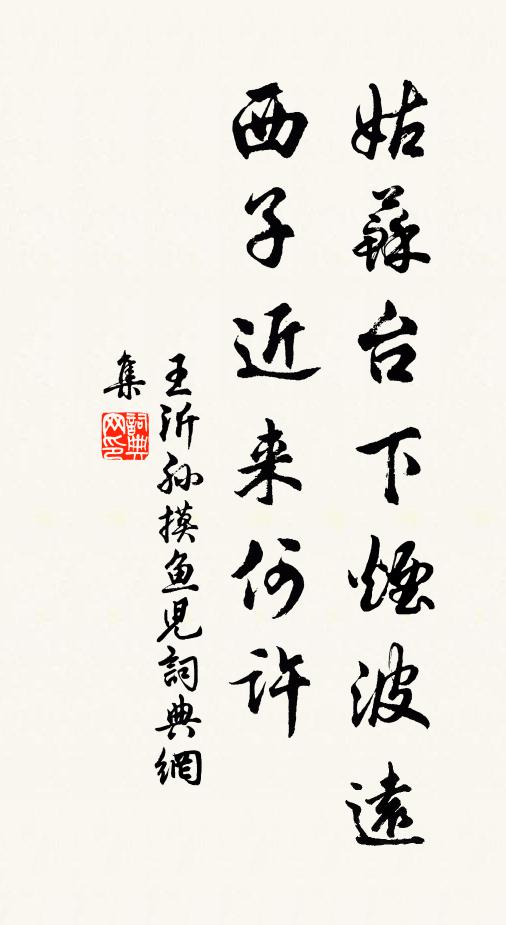 姑蘇台下煙波遠
西子近来何許
王沂孙摸鱼児詞典網
集
詞典网印